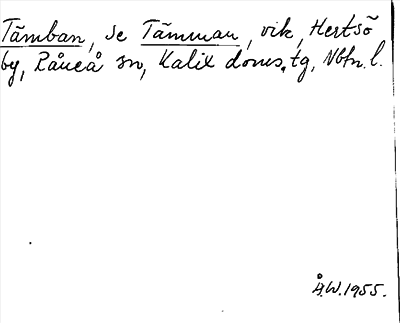 Tämban, se Tämman, vik, Hertsö
by, Råneå sn, Kalix doms.tg, Nbtn. l.
Å.W. 1955.